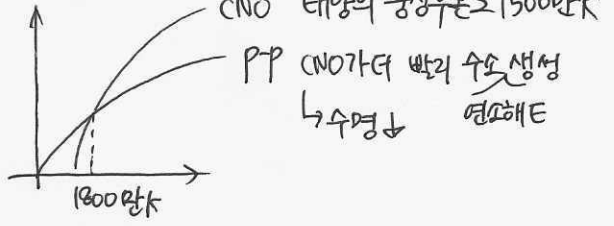 CNO 태양의 중심부온도 1500만K
P-P CNO가 더 빨리 수소 생성
↳수명↓ 연소해E
1800만K